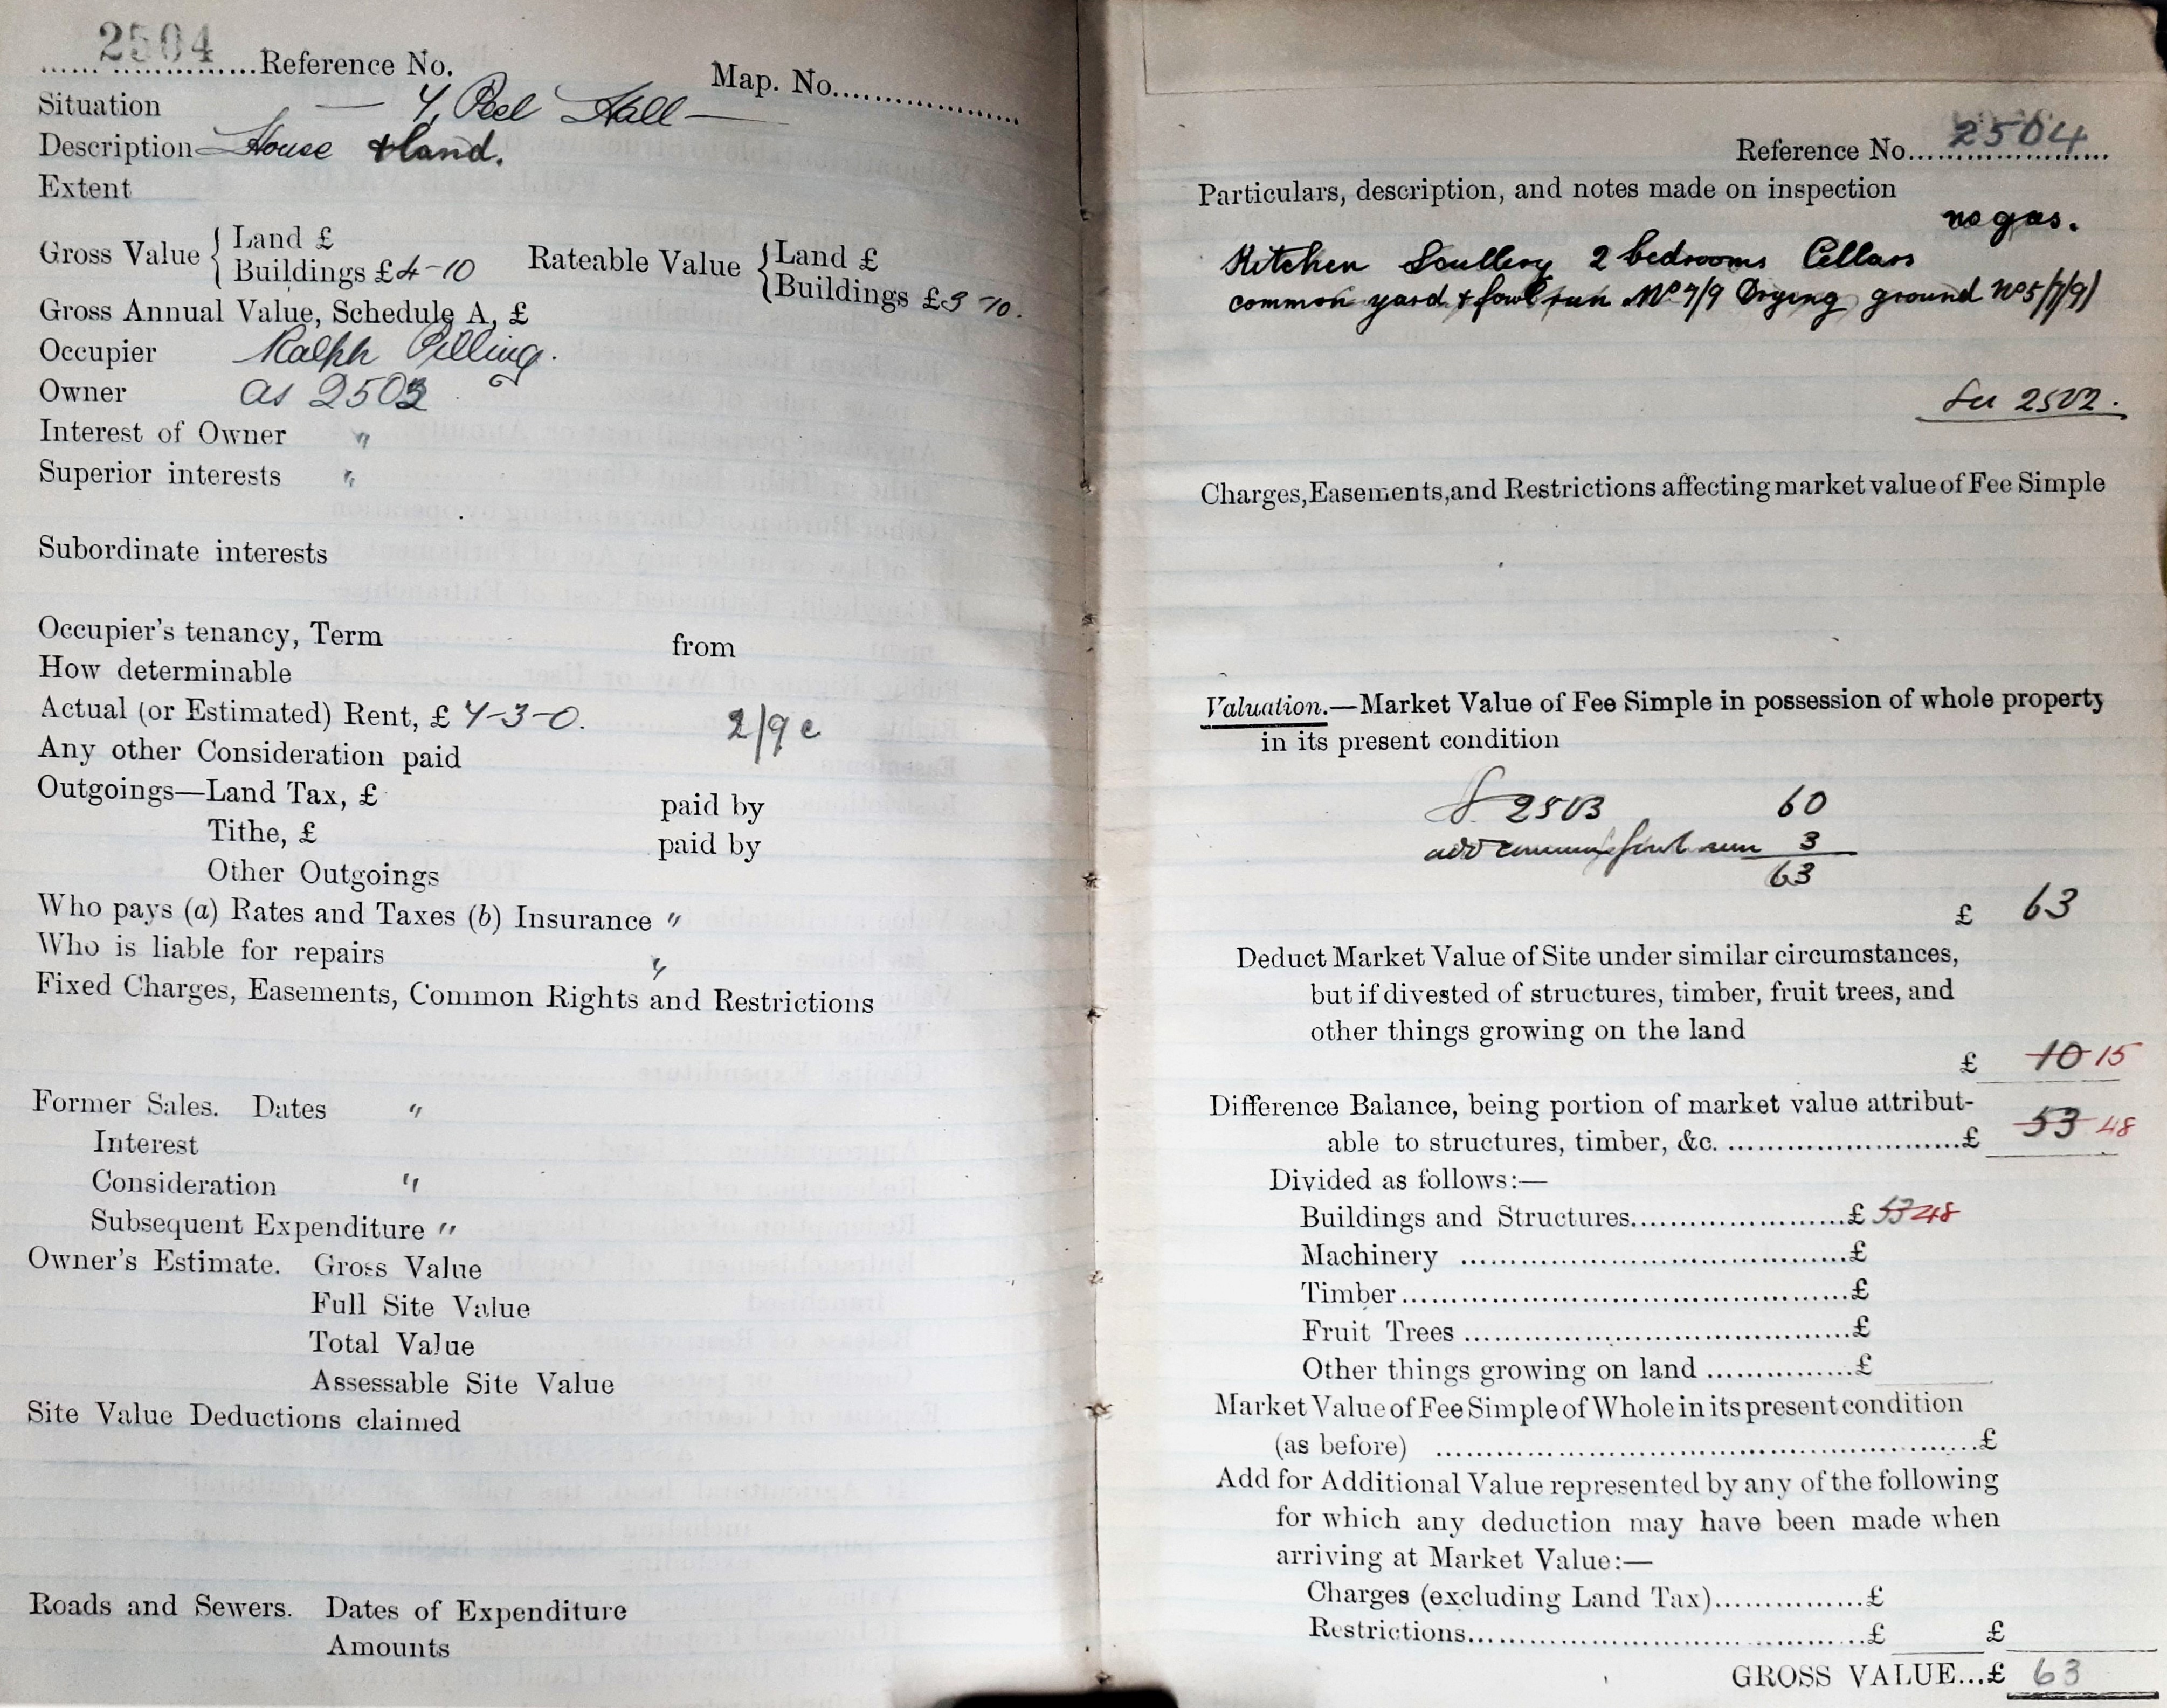 2504
Reference No.
Map. No.
Situation — 7, Peel Hall —
Description House & land.
Extent
Gross Value { Land £
Buildings £ 4-10
Rateable Value { Land £
Buildings £3-10.
Gross Annual Value, Schedule A, £
Occupier Ralph Pilling.
Owner as 2503
Interest of Owner "
Superior interests "
Subordinate interests
Occupier's tenancy, Term from
How determinable
Actual (or Estimated) Rent, £ 7-3-0. 2/9 c
Any other Consideration paid
Outgoings—Land Tax, £ paid by
Tithe, £ paid by
Other Outgoings
Who pays (a) Rates and Taxes (b) Insurance "
Who is liable for repairs "
Fixed Charges, Easements, Common Rights and Restrictions
Former Sales. Dates "
Interest
Consideration "
Subsequent Expenditure "
Owner's Estimate. Gross Value
Full Site Value
Total Value
Assessable Site Value
Site Value Deductions claimed
Roads and Sewers. Dates of Expenditure
Amounts
Reference No. 2504
Particulars, description, and notes made on inspection
no gas.
Kitchen Scullery 2 bedrooms Cellars
common yard & fowl run Nº 7/9 Drying ground Nº 5/7/9/
See 2502.
Charges, Easements, and Restrictions affecting market value of Fee Simple
Valuation.—Market Value of Fee Simple in possession of whole property
in its present condition
2503 60
add common fowl run 3
63
£ 63
Deduct Market Value of Site under similar circumstances,
but if divested of structures, timber, fruit trees, and
other things growing on the land
£ 10 15
Difference Balance, being portion of market value attribut-
able to structures, timber, &c. £ 53 48
Divided as follows:—
Buildings and Structures £ 53 48
Machinery £
Timber £
Fruit Trees £
Other things growing on land £
Market Value of Fee Simple of Whole in its present condition
(as before) £
Add for Additional Value represented by any of the following
for which any deduction may have been made when
arriving at Market Value:—
Charges (excluding Land Tax) £
Restrictions £ £
GROSS VALUE...£ 63